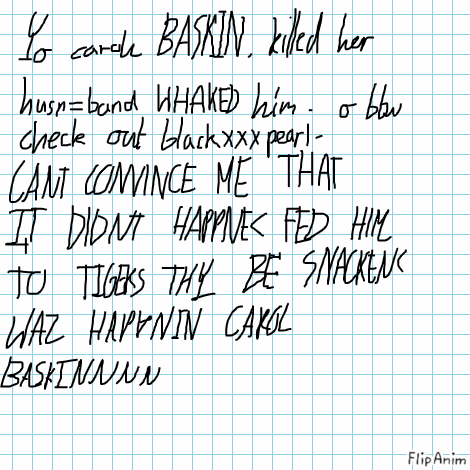 Yo carole BASKIN, killed her
husn=band WHAKED him. o btw
check out blackxxxpearl-
CANT CONVINCE ME THAT
IT DIDNT HAPPNE< FED HIM
TO TIGERS THY BE SNACKEN<
WAZ HAPPNIN CAROL
BASKINNNNN
FlipAnim